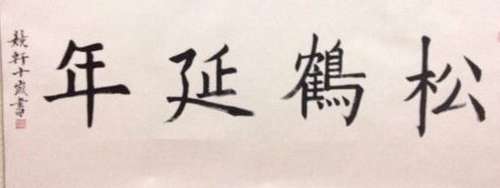 松鶴延年
競軒十歲書